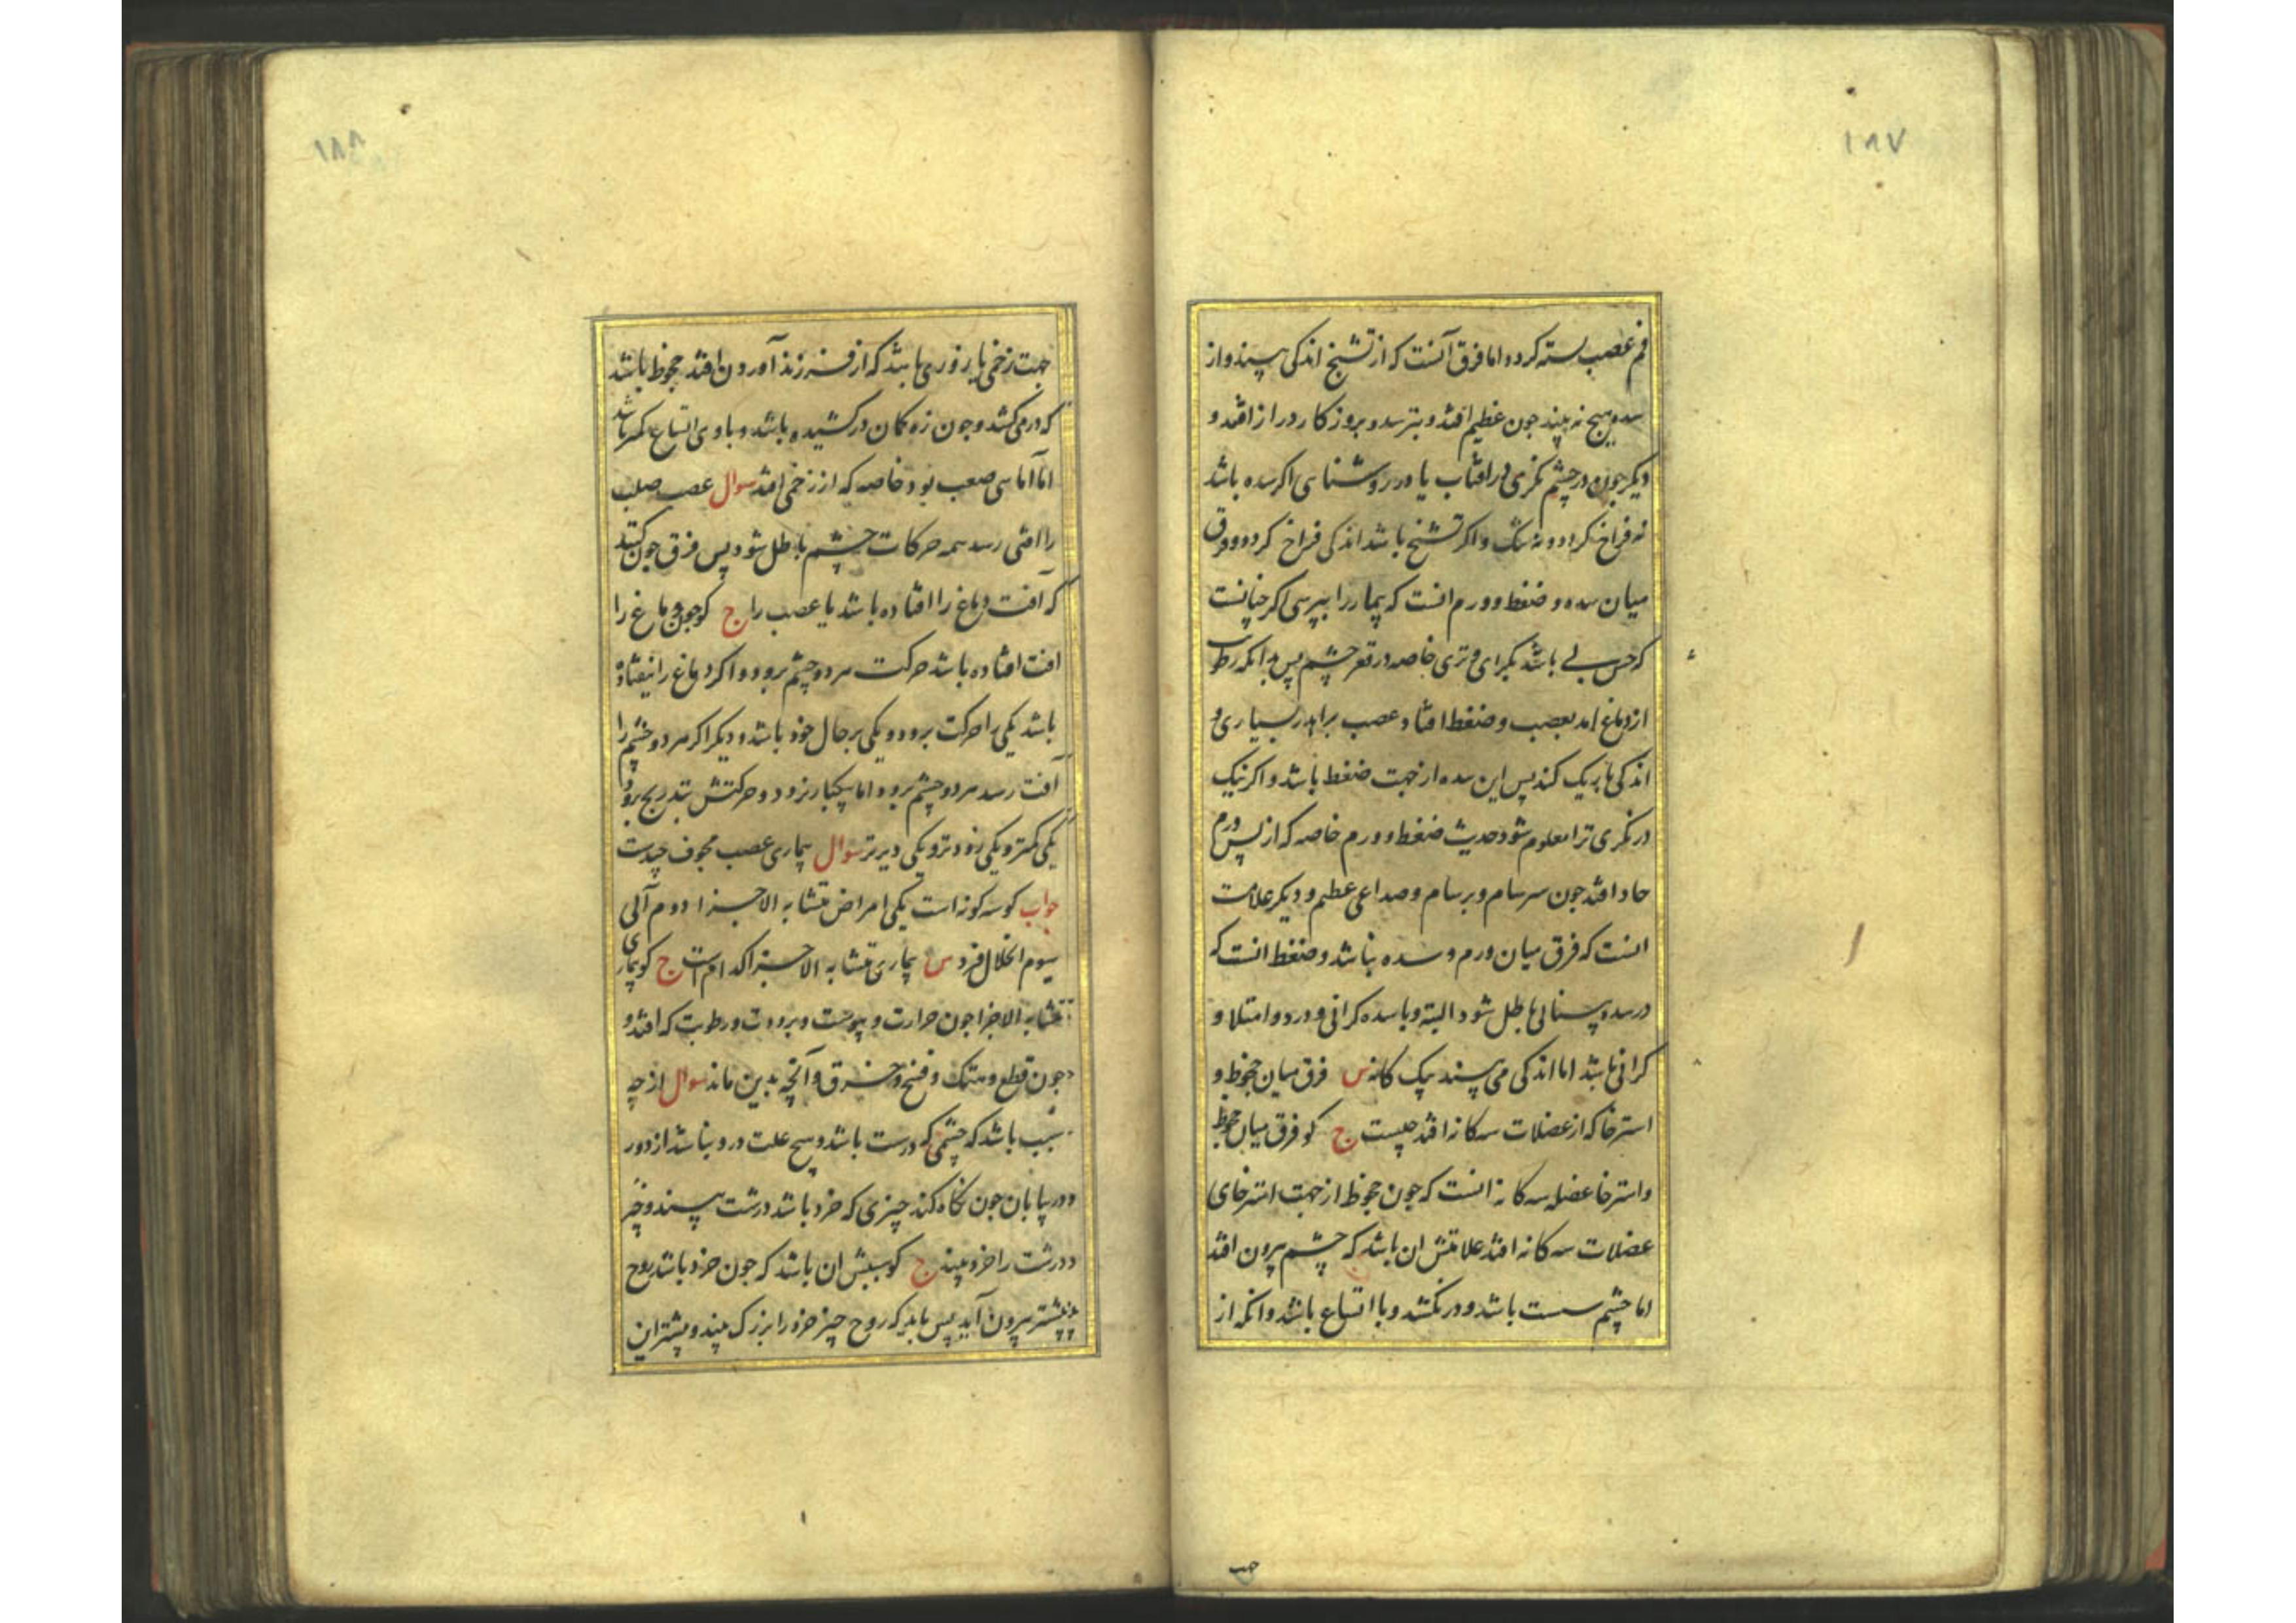 ١٨٧
فم عصب بسته کردد اما فرق آنست که از تشنج اندکی بیند واز
سده هیج نه بیند جون عظیم افتد و بترسد و بروزکار دراز افتد و
دیکر جون در چشم نکری در افتاب یا در روشنایی اکر سده باشد
نه فراخ کردد و نه تنک و اکر تشنج باشد اندکی فراخ کردد و فرق
میان سده و ضغط و ورم انست که بیمار را بپرسی اکر چنانست
که حس بی باشد بکرانی و تری خاصه در قعر چشم پس بدانکه رطوبت
از دماغ امد بعصب و ضغط افتاد و عصب برابر بسیاری و
اندکی باریک کند پس این سده از جهت ضغط باشد و اکر نیک
درنکری ترا معلوم شود حدیث ضغط و ورم خاصه که از پس ورم
حاد افتد جون سرسام و برسام و صداعی عظیم و دیکر علامت
انست که فرق میان ورم و سده باشد و ضغط انست که
در سده بینایی باطل شود البته و با سده کرانی و درد و امتلا و
کرانی باشد اما اندکی می بیند س فرق میان جحوظ و
استرخا که از عضلات سه کانه افتد چیست ج کو فرق میان جحوظ
و استرخا عضله سه کانه انست که جون جحوظ از جهت استرخای
عضلات سه کانه افتد علامتش ان باشد که چشم بیرون افتد
اما چشم سست باشد و در نکشد و با اتساع باشد و انکه از
جهت
١٨٨
جهت زخمی یا زوری باشد که از فرزند آوردن افتد جحوظ باشد
که در می کشد و جون زه کمان در کشیده باشد و با وی اتساع کمتر باشد
اما آماسی صعب بود خاصه که از زخمی افتد سوال عصب صلب
را افتی رسد همه حرکات چشم باطل شود پس فرق جون کنید
که آفت دماغ را افتاده باشد یا عصب را ج کو جون دماغ را
افت افتاده باشد حرکت هر دو چشم برود و اکر دماغ را نیفتاده
باشد یکی را حرکت برود و یکی بر حال خود باشد و دیکر اکر هر دو چشم را
آفت رسد هر دو چشم برود اما بیکبار نرود و حرکتش بتدریج برود
یکی کمتر و یکی زودتر و یکی دیرتر سوال بیماری عصب مجوف چیست
جواب کو سه کونه است یکی امراض متشابه الاجزا دوم آلی
سیوم انحلال فرد س بیماری متشابه الاجزا کدام است ج کو بیماری
متشابه الاجزا جون حرارت و یبوست و برودت و رطوبت که افتد و
جون قطع و هتک و فسخ و خرق و آنچه بدین ماند سوال از چه
سبب باشد که چشمی که درست باشد و هیچ علت درو نباشد از دور
و در بیابان جون نکاه کند چیزی که خرد باشد درشت بیند و چیز
درشت را خرد بیند ج کو سببش ان باشد که جون خرد باشد روح
بیشتر بیرون آید پس باید که روح چیز خرد را بزرک بیند و بیشتر این